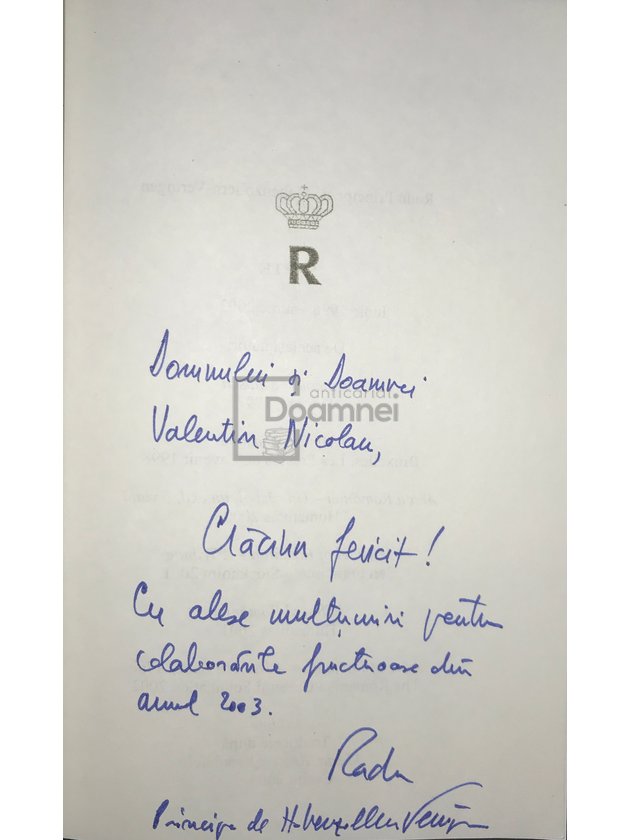 R
Domnului și Doamnei
anticariat
Doamnei
Valentin Nicolau,
Crăciun fericit!
Cu alese mulțumiri pentru
colaborările fructuoase din
anul 2003.
Radu
Principe de Hohenzollern Veringen